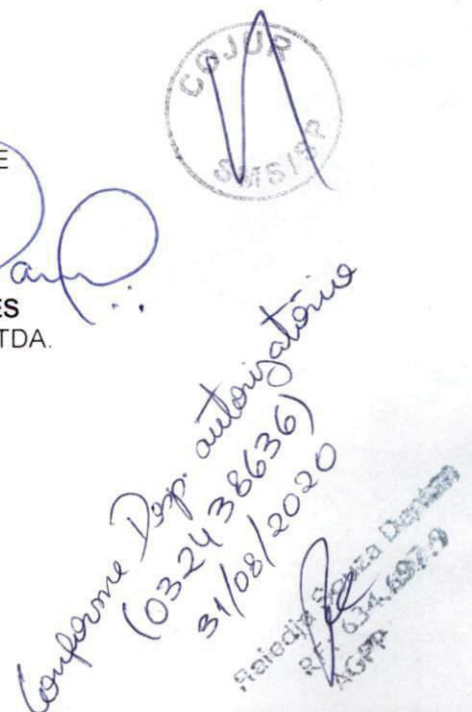 COJUR
SMS/SP
E
ES
TDA.
Conforme Desp. autorizatório
(032438636)
31/08/2020
Souza
RF. 634.697.9
AGPP